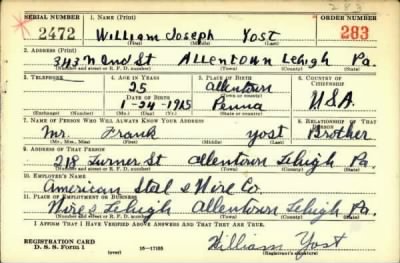 283
SERIAL NUMBER 1. NAME (Print) ORDER NUMBER
2472 William Joseph Yost 283
(First) (Middle) (Last)
2. ADDRESS (Print)
343 N 2nd St Allentown Lehigh Pa.
(Number and street or R. F. D. number) (Town) (County) (State)
3. TELEPHONE 4. AGE IN YEARS 5. PLACE OF BIRTH 6. COUNTRY OF CITIZENSHIP
25 Allentown
DATE OF BIRTH (Town or county)
1-24-1915 Penna U.S.A.
(Exchange) (Number) (Mo.) (Day) (Yr.) (State or country)
7. NAME OF PERSON WHO WILL ALWAYS KNOW YOUR ADDRESS 8. RELATIONSHIP OF THAT PERSON
Mr. Frank Yost Brother
(Mr., Mrs., Miss) (First) (Middle) (Last)
9. ADDRESS OF THAT PERSON
218 Turner St Allentown Lehigh Pa.
(Number and street or R. F. D. number) (Town) (County) (State)
10. EMPLOYER'S NAME
American Steel & Wire Co.
11. PLACE OF EMPLOYMENT OR BUSINESS
Lehigh Allentown Lehigh Pa.
(Number and street or R. F. D. number) (Town) (County) (State)
I AFFIRM THAT I HAVE VERIFIED ABOVE ANSWERS AND THAT THEY ARE TRUE.
REGISTRATION CARD
D. S. S. Form 1 (over) 16-17105 William Yost
(Registrant's signature)